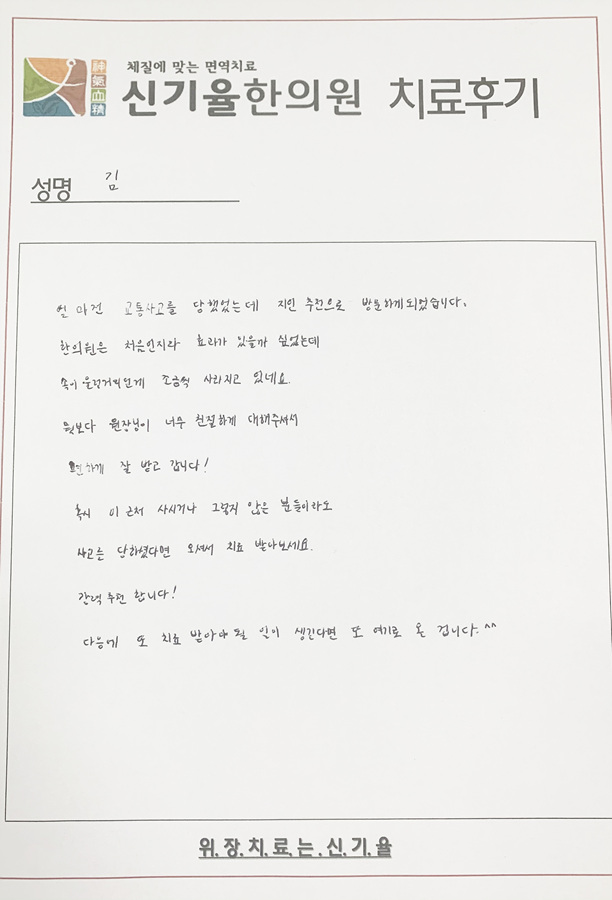 체질에 맞는 면역치료
神氣血精
신기율한의원 치료후기
성명 김
얼마전 교통사고를 당했었는데 지인 추천으로 방문하게되었습니다.
한의원은 처음인지라 효과가 있을까 싶었는데
속이 울렁거리던게 조금씩 사라지고 있네요.
뭣보다 원장님이 너무 친절하게 대해주셔서
편하게 잘 받고 갑니다!
혹시 이 근처 사시거나 그렇지 않은 분들이라도
사고를 당하셨다면 오셔서 치료 받아보세요.
강력 추천 합니다!
다음에 또 치료 받아야 될 일이 생긴다면 또 여기로 올 겁니다.^^
위.장.치.료.는.신.기.율